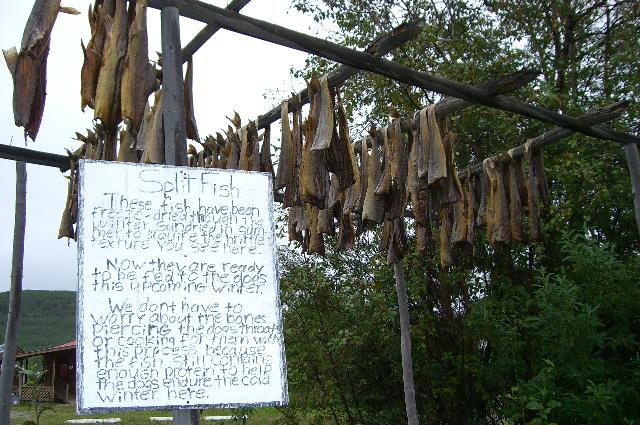 Split Fish
These fish have been
freeze-dried through the
winter. Sundried in sum
mer to
texture you see here.
Now they are ready
to be fed to the dogs
this upcoming winter.
We dont have to
worry about the bones
piercing the dogs throats
or cooking for them with
this process, because
the fish still contains
enough protein to help
the dogs endure the cold
winter here.